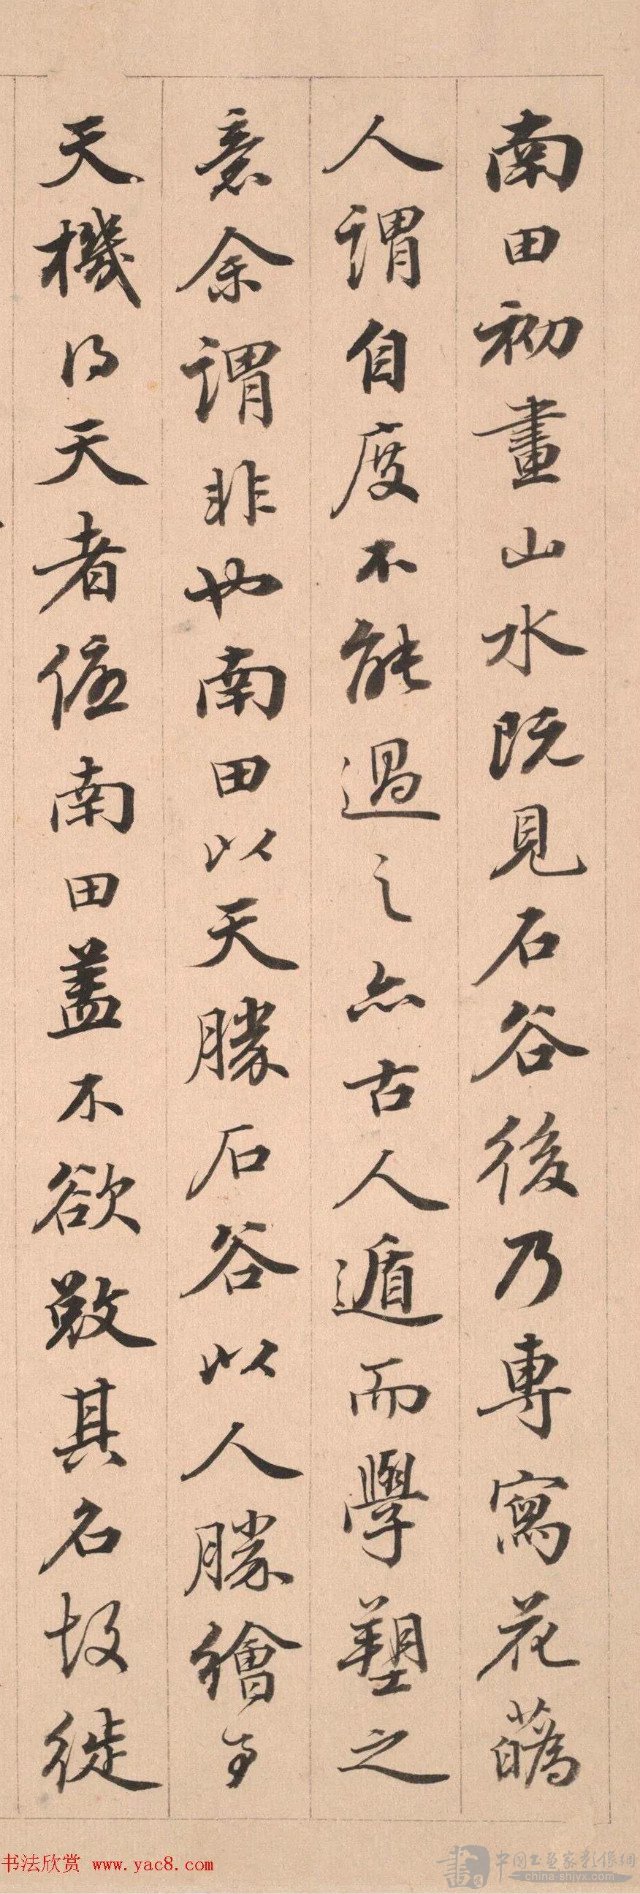 南田初畫山水既見石谷後乃專寫花蘤
人謂自度不能過之亦古人遁而學塑之
意余謂非也南田以天勝石谷以人勝繪事
天機得天者優南田蓋不欲其名故徙
书法欣赏 www.yac8.com
china-shjyx.com